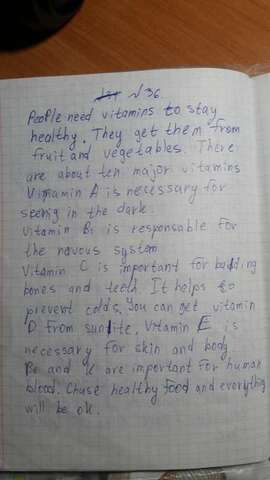 №36.
People need vitamins to stay
healthy. They get them from
fruit and vegetables. There
are about ten major vitamins
Vimamin A is necessary for
seenig in the dark.
Vitamin B1 is responsable for
the navous system
Vitamin C is important for building
bones and teeth. It helps to
prevent colds. You can get vitamin
D from sunlite, Vitamin E is
necessary for skin and body
B6 and K are important for human
blood. Chuse healthy food and everything
will be ok.